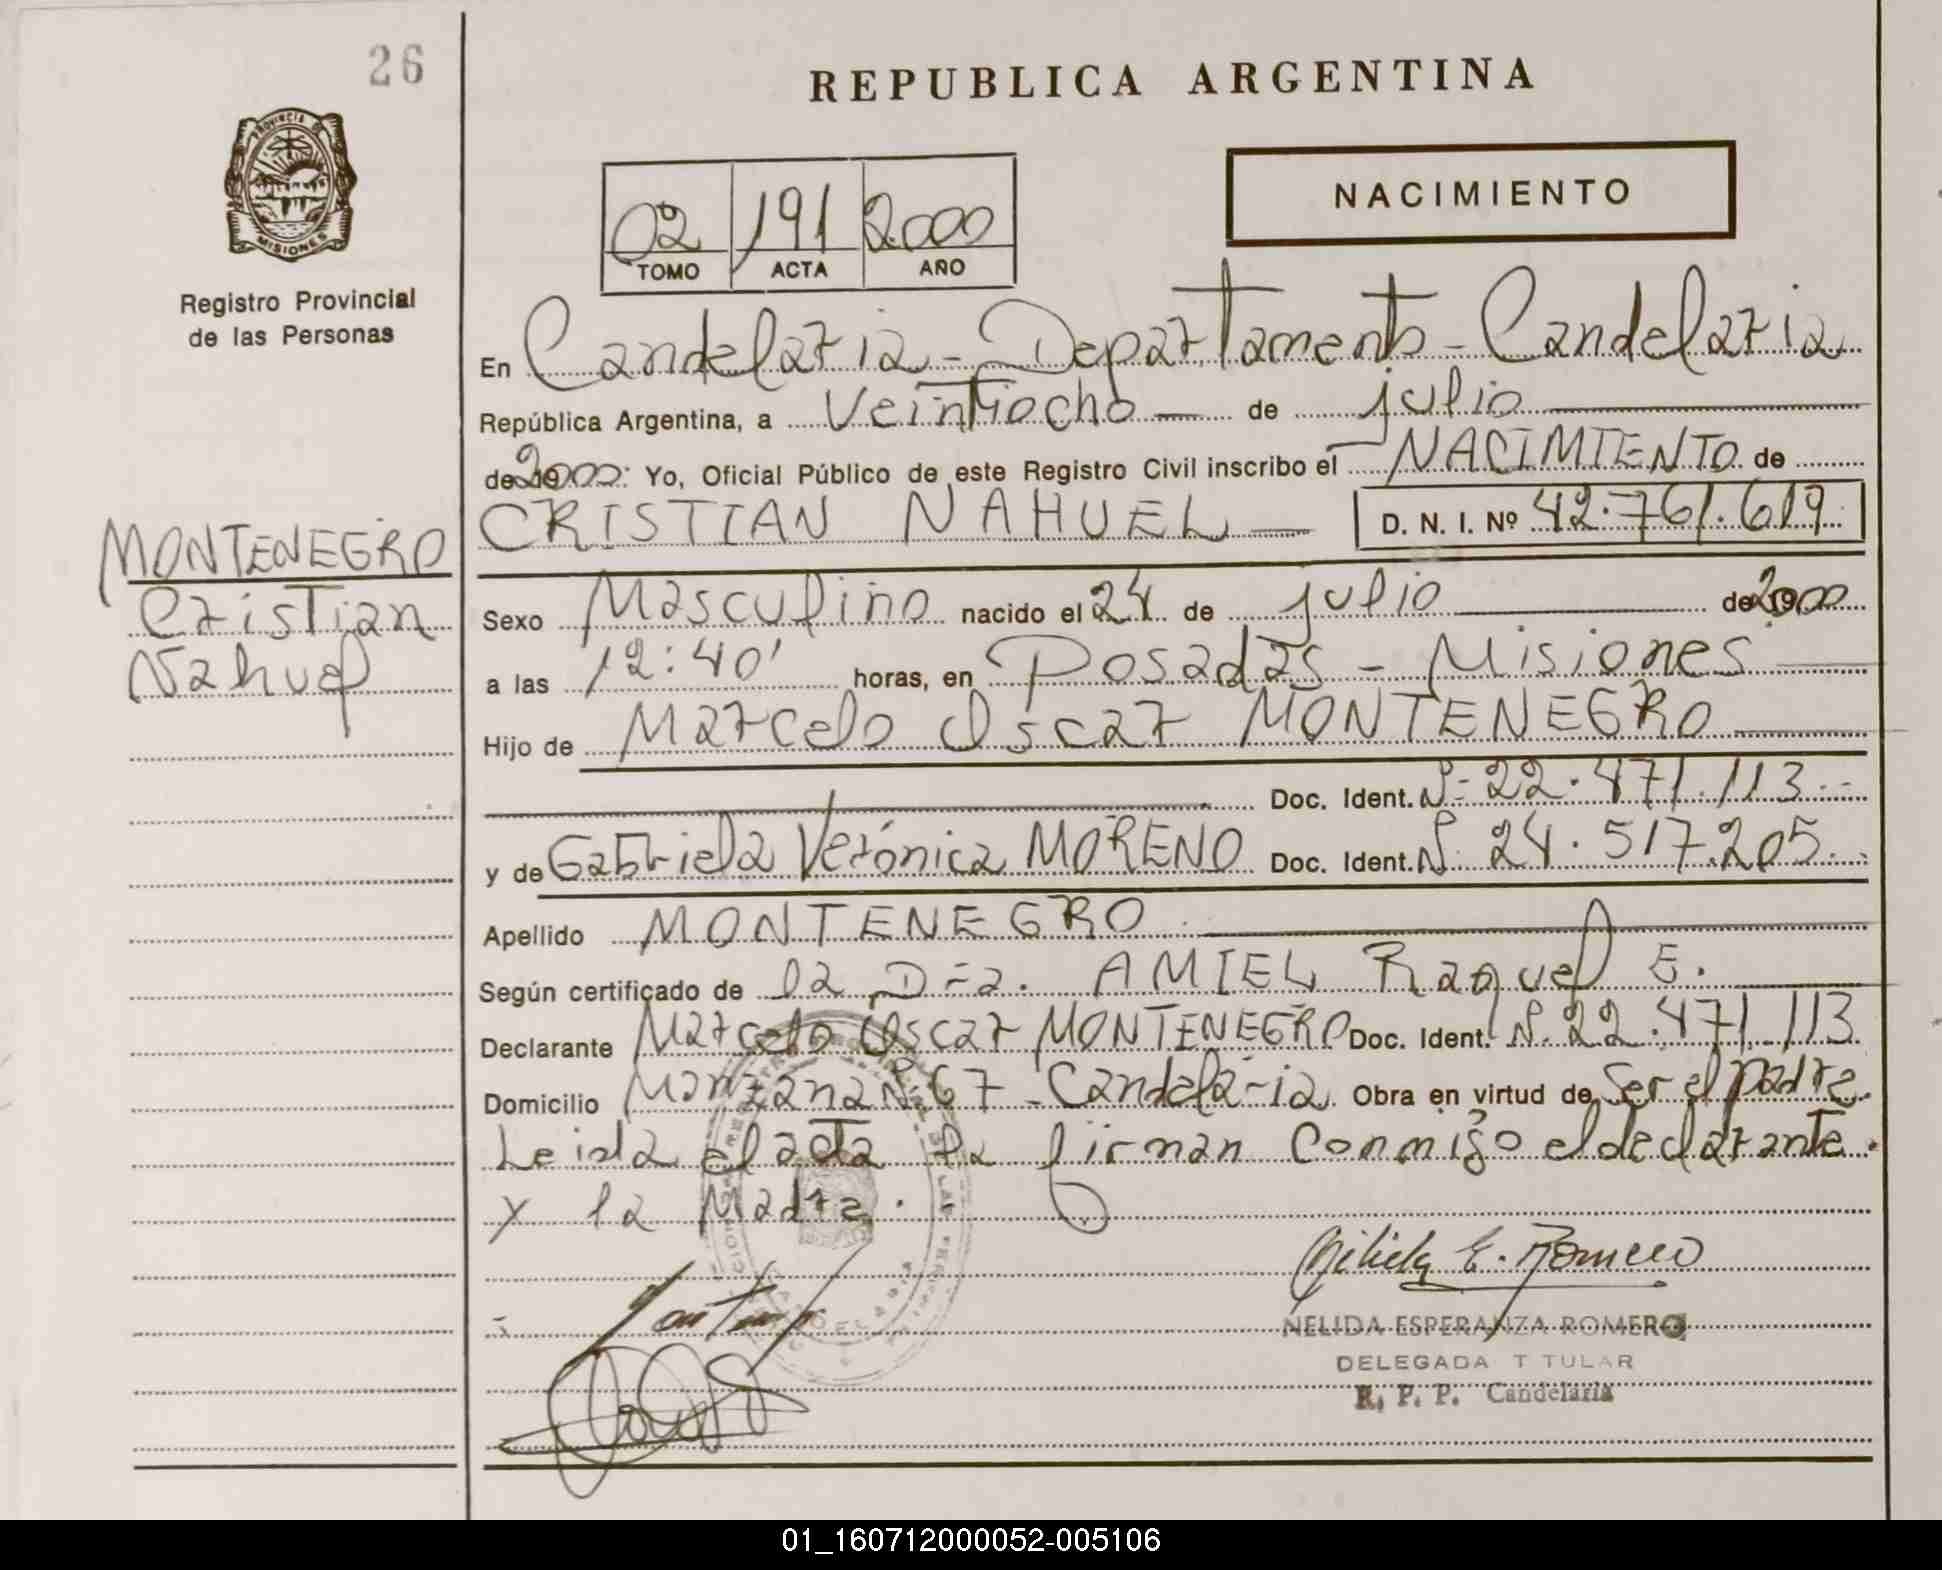 26
REPUBLICA ARGENTINA
PROVINCIA DE
MISIONES
Registro Provincial
de las Personas
02 191 2.000
TOMO ACTA AÑO
NACIMIENTO
En Candelaria - Departamento - Candelaria
República Argentina, a veintiocho de julio
de 2000: Yo, Oficial Público de este Registro Civil inscribo el NACIMIENTO de
CRISTIAN NAHUEL D. N. I. Nº 42.761.619
MONTENEGRO
Cristian
Nahuel
Sexo Masculino nacido el 24 de julio de 2000
a las 12:40' horas, en Posadas - Misiones
Hijo de Marcelo Oscar MONTENEGRO
Doc. Ident. Nº 22.471.113.-
y de Gabriela Verónica MORENO Doc. Ident. Nº 24.517.205.
Apellido MONTENEGRO
Según certificado de la Dra. AMIEL Raquel E.
Declarante Marcelo Oscar MONTENEGRO Doc. Ident. Nº 22.471.113
Domicilio Manzana Nº 67 - Candelaria Obra en virtud de ser el padre.
Leida el acta la firman conmigo el declarante
y la Madre.
Nélida E. Romero
NELIDA ESPERANZA ROMERO
DELEGADA T TULAR
R. P. P. Candelaria
01_160712000052-005106